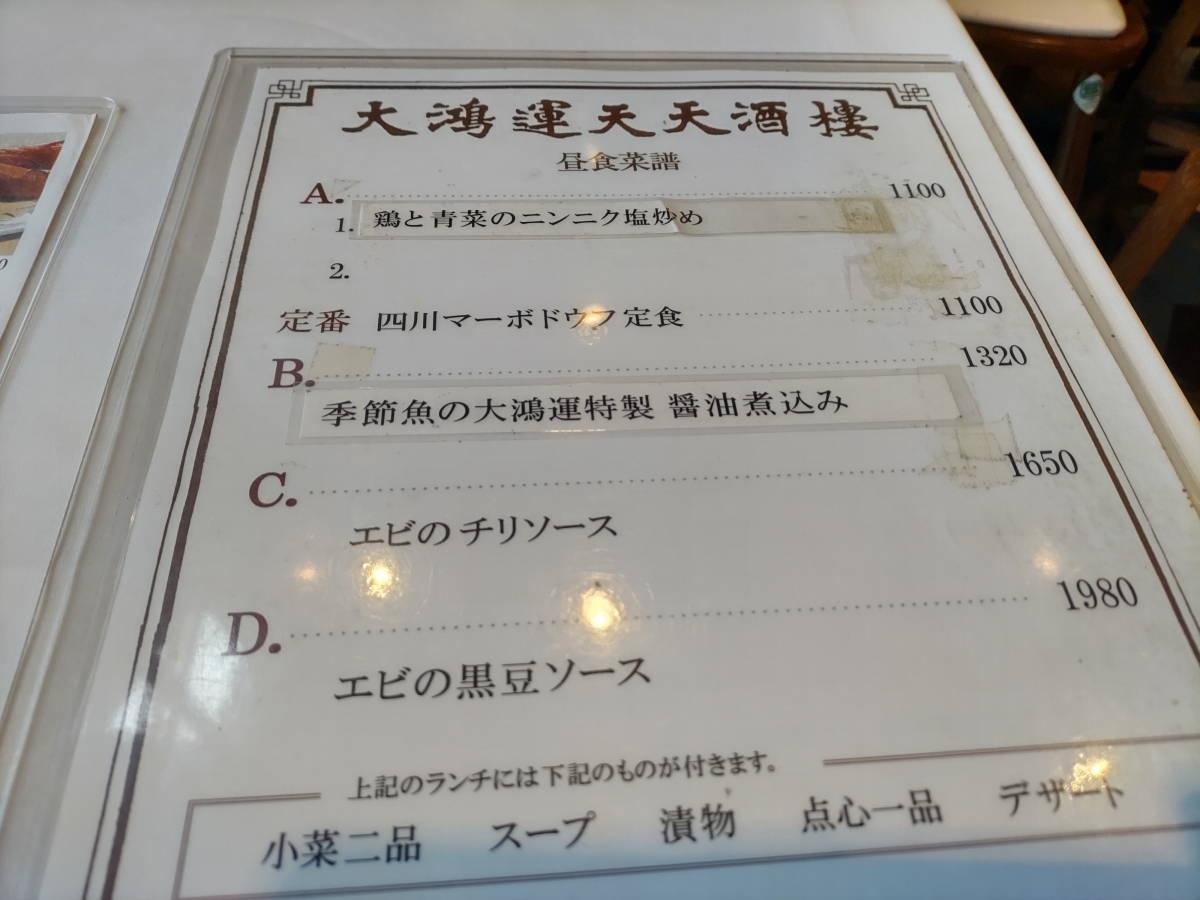 大鴻運天天酒樓
昼食菜譜
A. 1100
1. 鶏と青菜のニンニク塩炒め
2.
定番 四川マーボドウフ定食 1100
B. 1320
季節魚の大鴻運特製 醤油煮込み
C. 1650
エビのチリソース
D. 1980
エビの黒豆ソース
上記のランチには下記のものが付きます。
小菜二品 スープ 漬物 点心一品 デザート